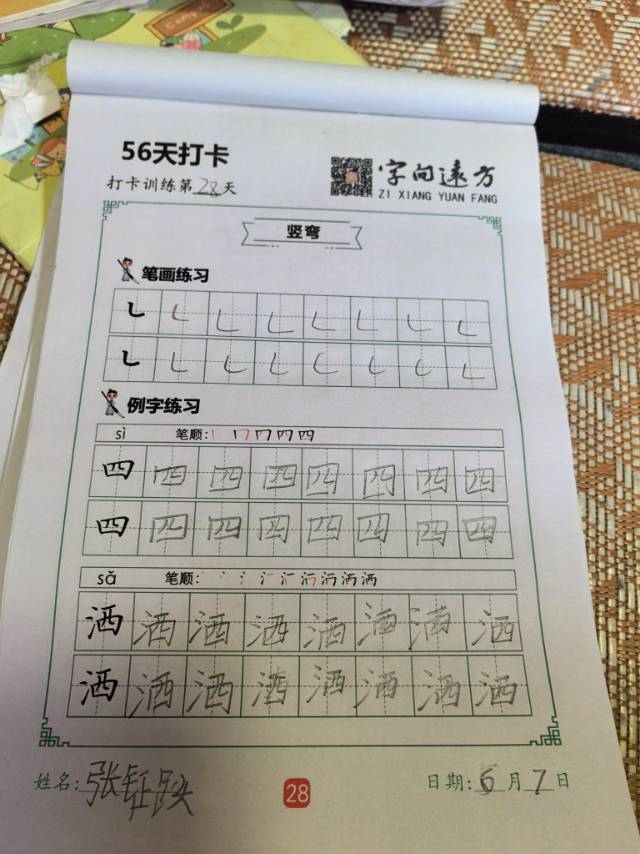 56天打卡
打卡训练第28天
字向远方
ZI XIANG YUAN FANG
竖弯
笔画练习
例字练习
sì 笔顺:
四 四 四 四 四 四 四 四
四 四 四 四 四 四 四 四
sǎ 笔顺:
洒 洒 洒 洒 洒 洒 洒 洒
洒 洒 洒 洒 洒 洒 洒 洒
姓名:张钲
28
日期:6月7日